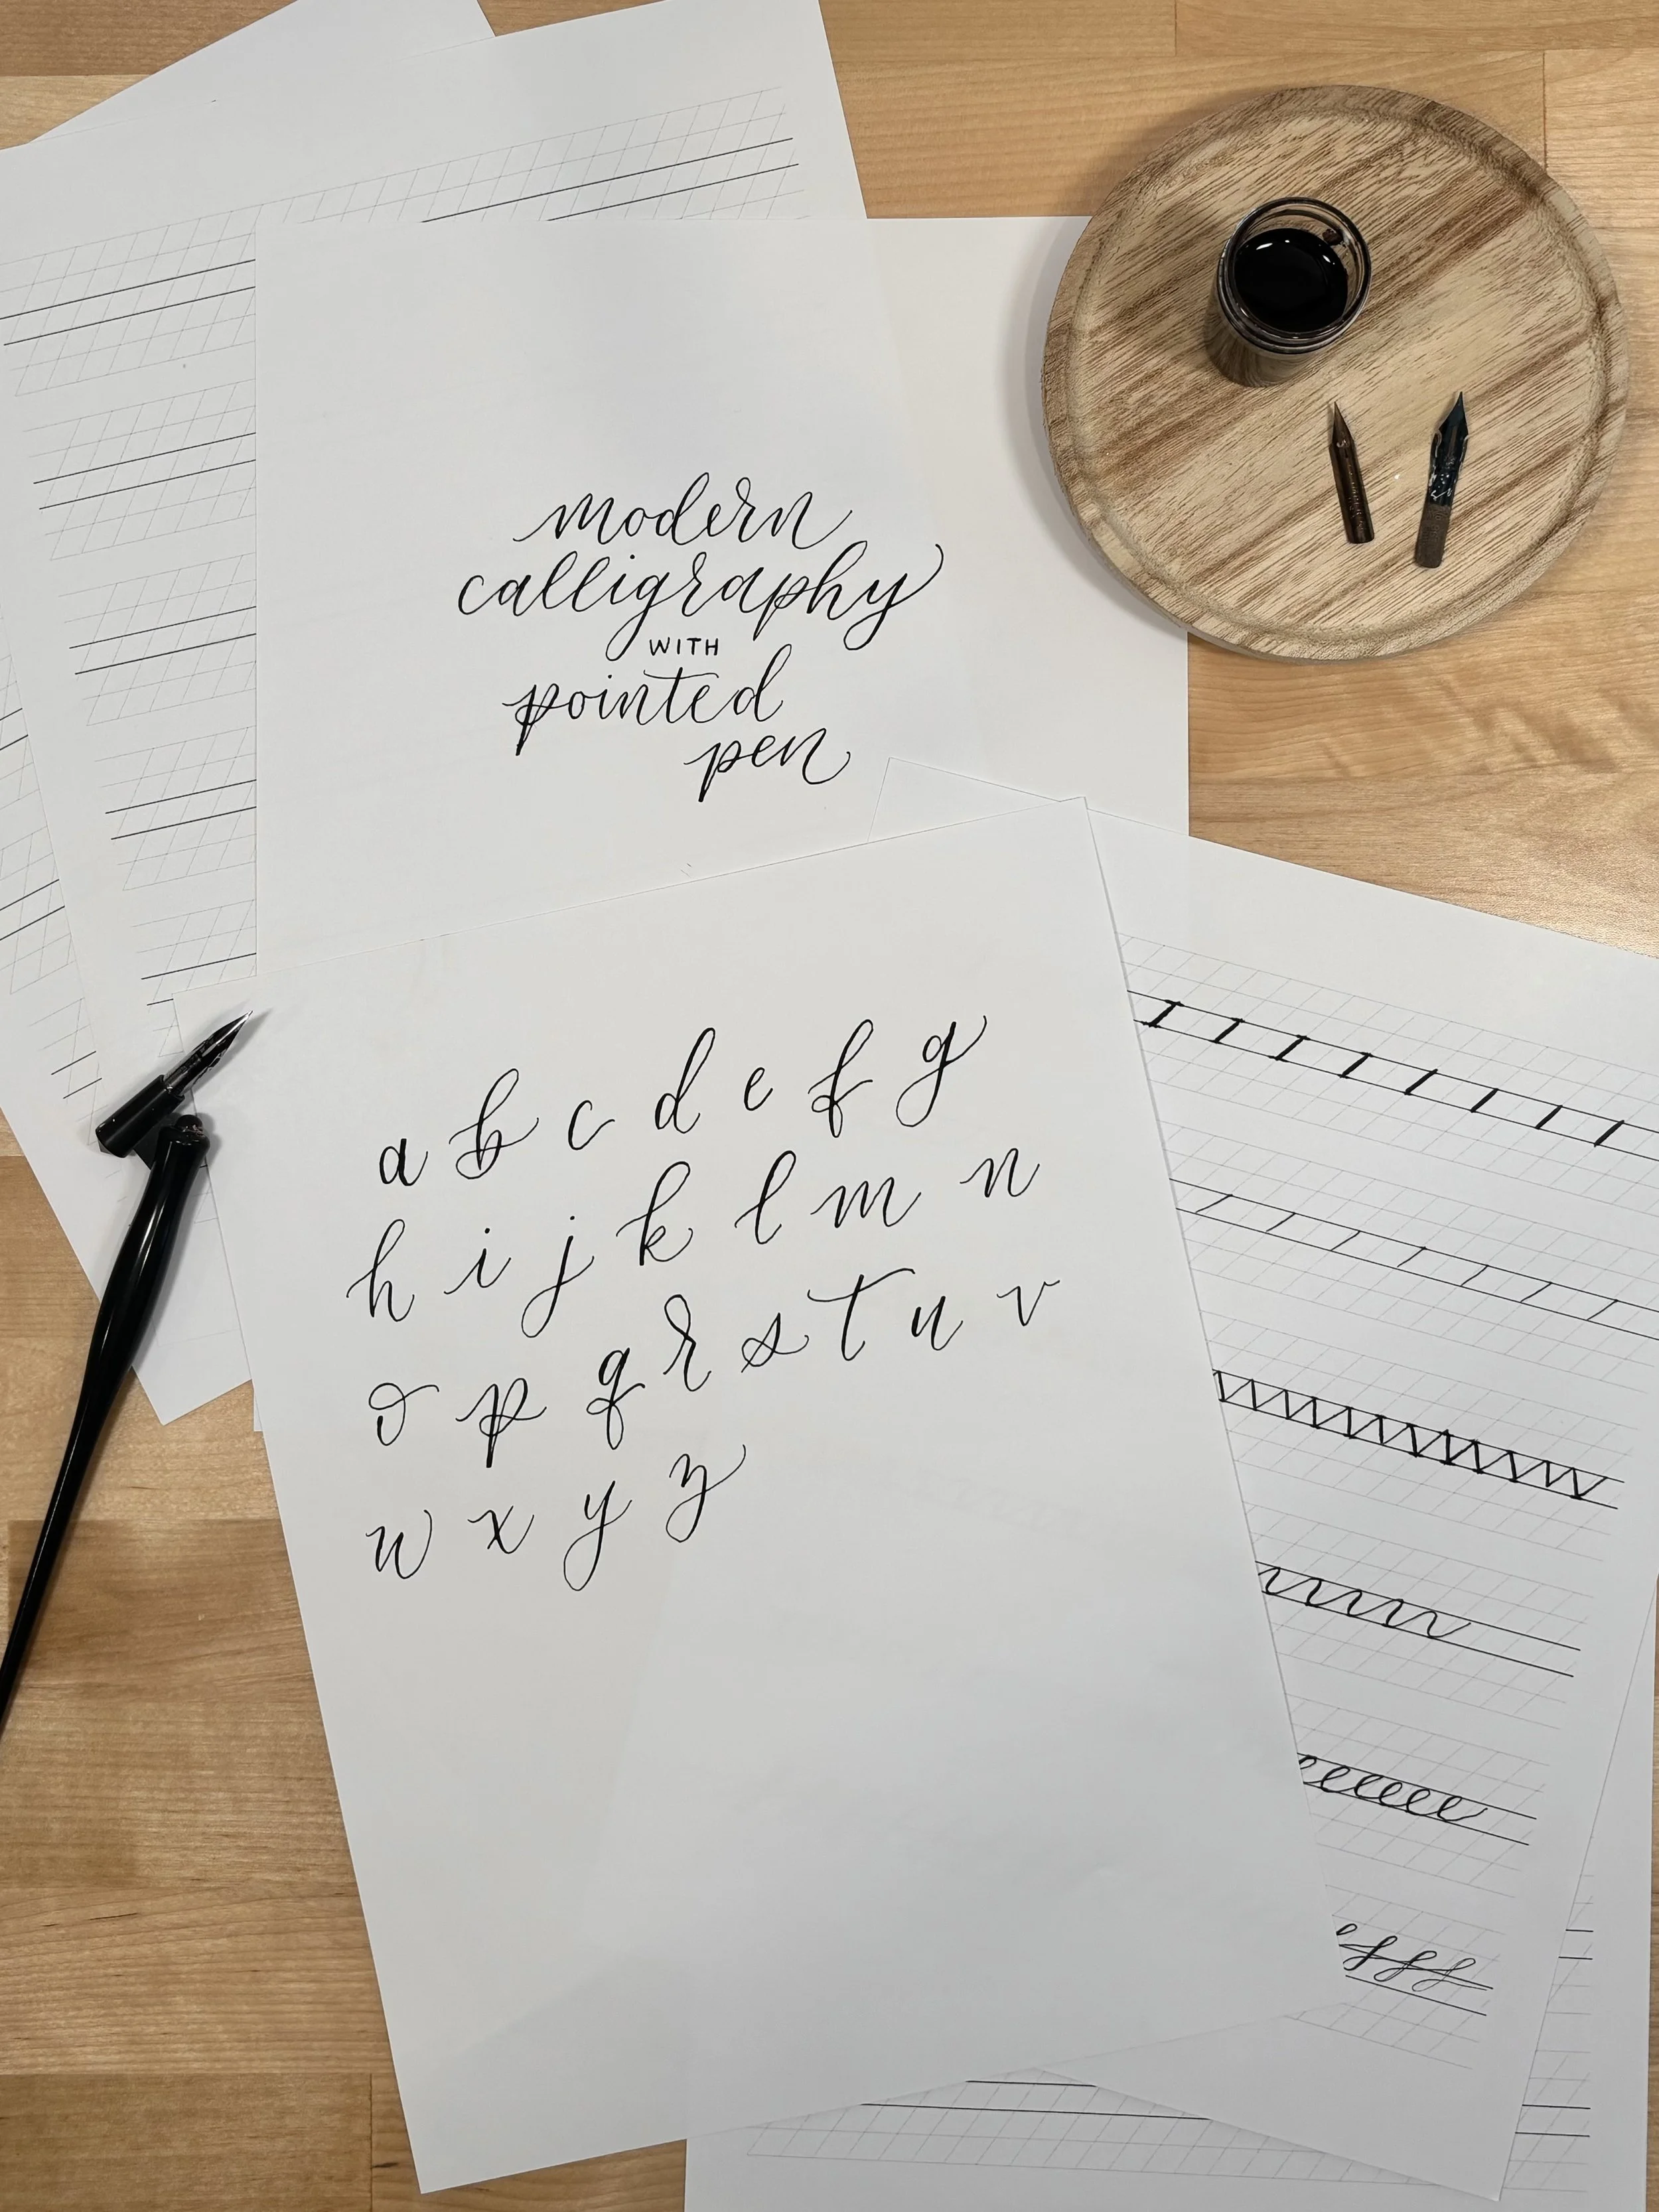 modern
calligraphy
WITH
pointed
pen
a b c d e f g
h i j k l m n
o p q r s t u v
w x y z
eeeeee